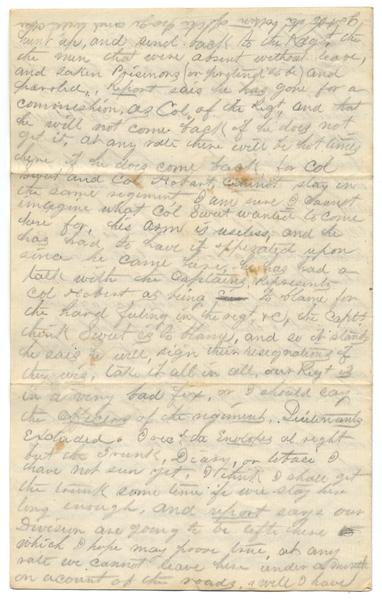 hunt up, and send back to the Regt, the
the men that were absent without leave,
and taken Prisinors (or pretend to be) and
parolled, Report says he has gone for a
commishion, as Col, of the Rgt, and that
he will not come back if he does not
get it, at any rate there will be hot times
here if he does come back for Col
Sweet and Col Hobart, cannot stay in
the same regiment I am sure I cannot
imagine what Col Sweet wanted to come
here for, his arm is useless, and he
has had to have it opperated upon
since he came here, he has had a
talk with the Captains, Represents
Col Hobart as being to blame for
the hard feling in the regt &c, the Capts
think Sweet is to blame, and so it stands
he sais he will, sign their resegnations if
they wis, take it all in all, our Regt is
in a verry bad fix, or I should say
the officers of the regiment, Lieutenants
Excluded. I rec'd the Envlopes al right
but the Trunk, Diary, or tobaco I
have not seen yet, I think I shall get
the trunk some time if we stay here
long enough, and report says our
Division are going to be left here
which I hope may proove true, at any
rate we cannot leave here under a month
on acount of the roads, I will I have